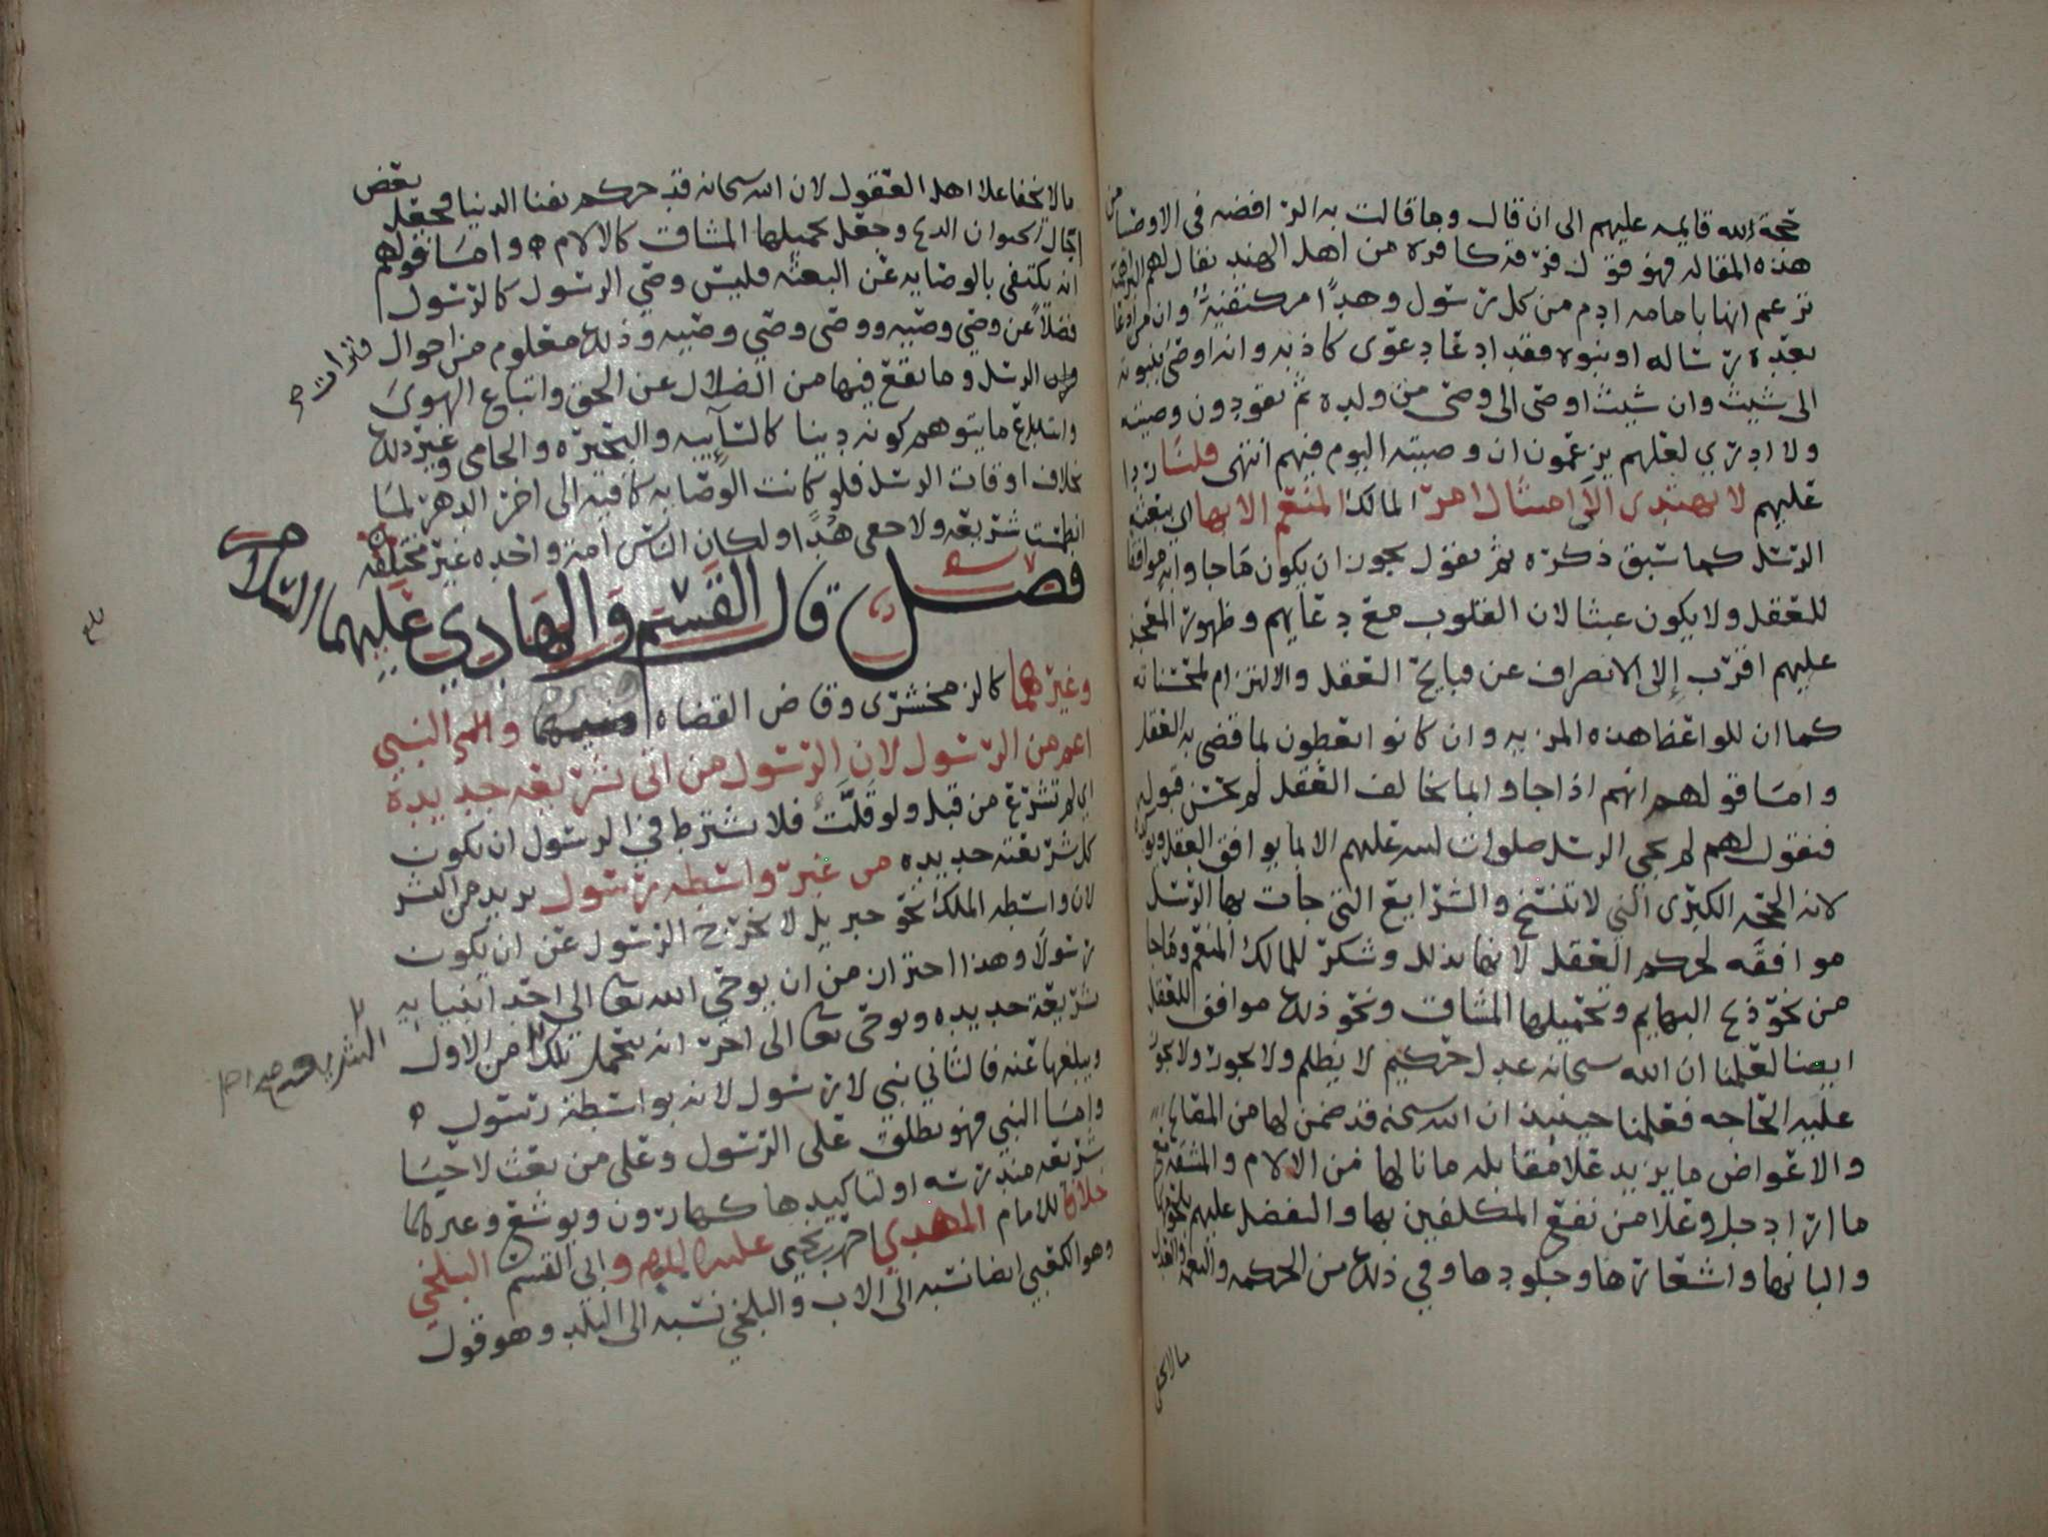 حجة الله قايمه عليهم الى ان قال وما قالت به الرافضه في الاوصيا من
هذه المقاله فهو قول فرقه كافره من اهل الهند يقال لهم البراهمة
تزعم انها بامامه ادم من كل رسول وهدًا مكتفيةٌ وان من ادعا
بعده رساله او نبوه فقد ادعا دعوى كاذبه وانه اوصى بنبوته
الى شيث وان شيث اوصى الى وصي من ولده ثم يقودون وصيته
ولا ادري لعلهم يزعمون ان وصيته اليوم فيهم انتهى قلنا ردا
عليهم لا يهتدى الى امتثال امر المالك المنعم الا بها اي ببعثه
الرسل كما سبق ذكره ثم نقول يجوز ان يكون ما جاوا به موافقا
للعقل ولا يكون عبثا لان القلوب مع دعايهم وظهور المعجز
عليهم اقرب إلى الانصراف عن قبايح العقل والالتزام لمحسناته
كما ان للواعظ هذه المزيه وان كانوا يعظون بما قضى به العقل
وامّا قولهم انهم اذا جاوا بما يخالف العقل لم يحسن قبوله
فنقول لهم لم يجي الرسل صلوات الله عليهم الا بما يوافق العقل
لانه الحجه الكبرى التي لا تنسخ والشرايع التي جات بها الرسل
موافقه لحكم العقل لانها بذلك وشكر للمالك المنعم وما جا
من نحو ذبح البهايم وتحميلها المشاق ونحو ذلك موافق للعقل
ايضا لعلمنا ان الله سبحانه عدل حكيم لا يظلم ولا يجور ولا يجوز
عليه الحاجه فعلمنا حينيذ ان الله سبحنه قد ضمن لها من المنافع
والاعواض ما يزيد علا مقابله ما نالها من الالام والمشقه مع
ما اراد جل وعلا من نفع المكلفين بها والتفضل عليهم بلحومها
والبانها واشعارها وجلودها وفي ذلك من الحكمه والنعمه والفضل
ما لا يخفى
ما لا يخفا علا اهل العقول لان الله سبحانه قد حكم بفنا الدنيا فجعل بعض
اجال الحيوان الذبح وجعل تحميلها المشاق كالالام ه وامّا قولهم
انه يكتفى بالوصايه عن البعثه فليس وصي الرسول كالرسول
فضلاً عن وصي وصيه ووصي وصي وصيه وذلك معلوم من احوال فترات
الرسل وما يقع فيها من الضلال عن الحق واتباع الهوى
وابتداع ما يتوهم كونه دينا كالسآيبه والبحيره والحامي وغير ذلك
بخلاف اوقات الرسل فلو كانت الوصايه كافيه الى اخر الدهر لمّا
انطمست شريعه ولا خفي هُدًا ولكان الناس امة واحده غير مختلفه
فصل قال القسم والهادي عليهما السلام
وغيرهما كالزمخشري وقاض القضاه وغيرهما والنبي
اعم من الرسول لان الرسول من اتى بشريعه جديدة
اي لم تشرع من قبل ولو قلّت فلا يشترط في الرسول ان يكون
كل شريعته جديده من غير واسطه رسول يريد من البشر
لان واسطه الملك نحو جبريل لا يخرج الرسول عن ان يكون
رسولا وهذا احتراز من ان يوحي الله تعالى الى احد انبيايه
شريعة جديده ويوحي تعالى الى اخر انه يتحمل تلك من الاول
ويبلغها عنه فالثاني نبي لا رسول لانه بواسطة رسول ه
وامّا النبي فهو يطلق على الرسول وعلى من بعث لاحيا
شريعه مندرسه او لتاكيدها كهارون ويوشع وغيرهما
خلافا للامام المهدي احمد بن يحيى عليه السلام وابي القسم البلخي
وهو الكعبي ايضا نسبه الى الاب والبلخي نسبه الى البلد وهو قول